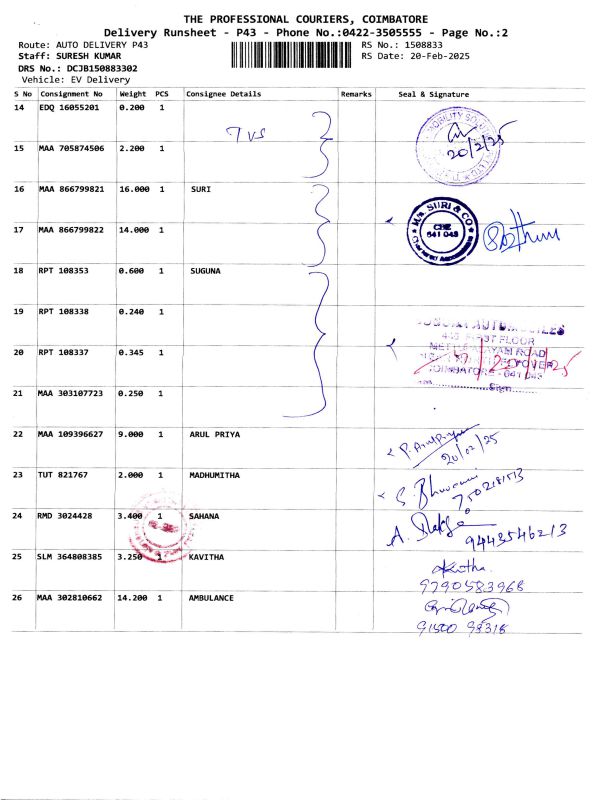 THE PROFESSIONAL COURIERS, COIMBATORE
Delivery Runsheet - P43 - Phone No.:0422-3505555 - Page No.:2
Route: AUTO DELIVERY P43
RS No.: 1508833
Staff: SURESH KUMAR
RS Date: 20-Feb-2025
DRS No.: DCJB150883302
Vehicle: EV Delivery
S No Consignment No Weight PCS Consignee Details Remarks Seal & Signature
14 EDQ 16055201 0.200 1
TVS
20/2/25
15 MAA 705874506 2.200 1
16 MAA 866799821 16.000 1 SURI
M/s. SURI & CO
CBE
641 043
17 MAA 866799822 14.000 1
18 RPT 108353 0.600 1 SUGUNA
19 RPT 108338 0.240 1
FIRST FLOOR
20 RPT 108337 0.345 1
ROAD
COIMBATORE - 641 043
Sign
21 MAA 303107723 0.250 1
22 MAA 109396627 9.000 1 ARUL PRIYA
20/02/25
23 TUT 821767 2.000 1 MADHUMITHA
24 RMD 3024428 3.400 1 SAHANA
9443546213
25 SLM 364808385 3.250 1 KAVITHA
Kavitha.
9790583968
26 MAA 302810662 14.200 1 AMBULANCE
91500 98318